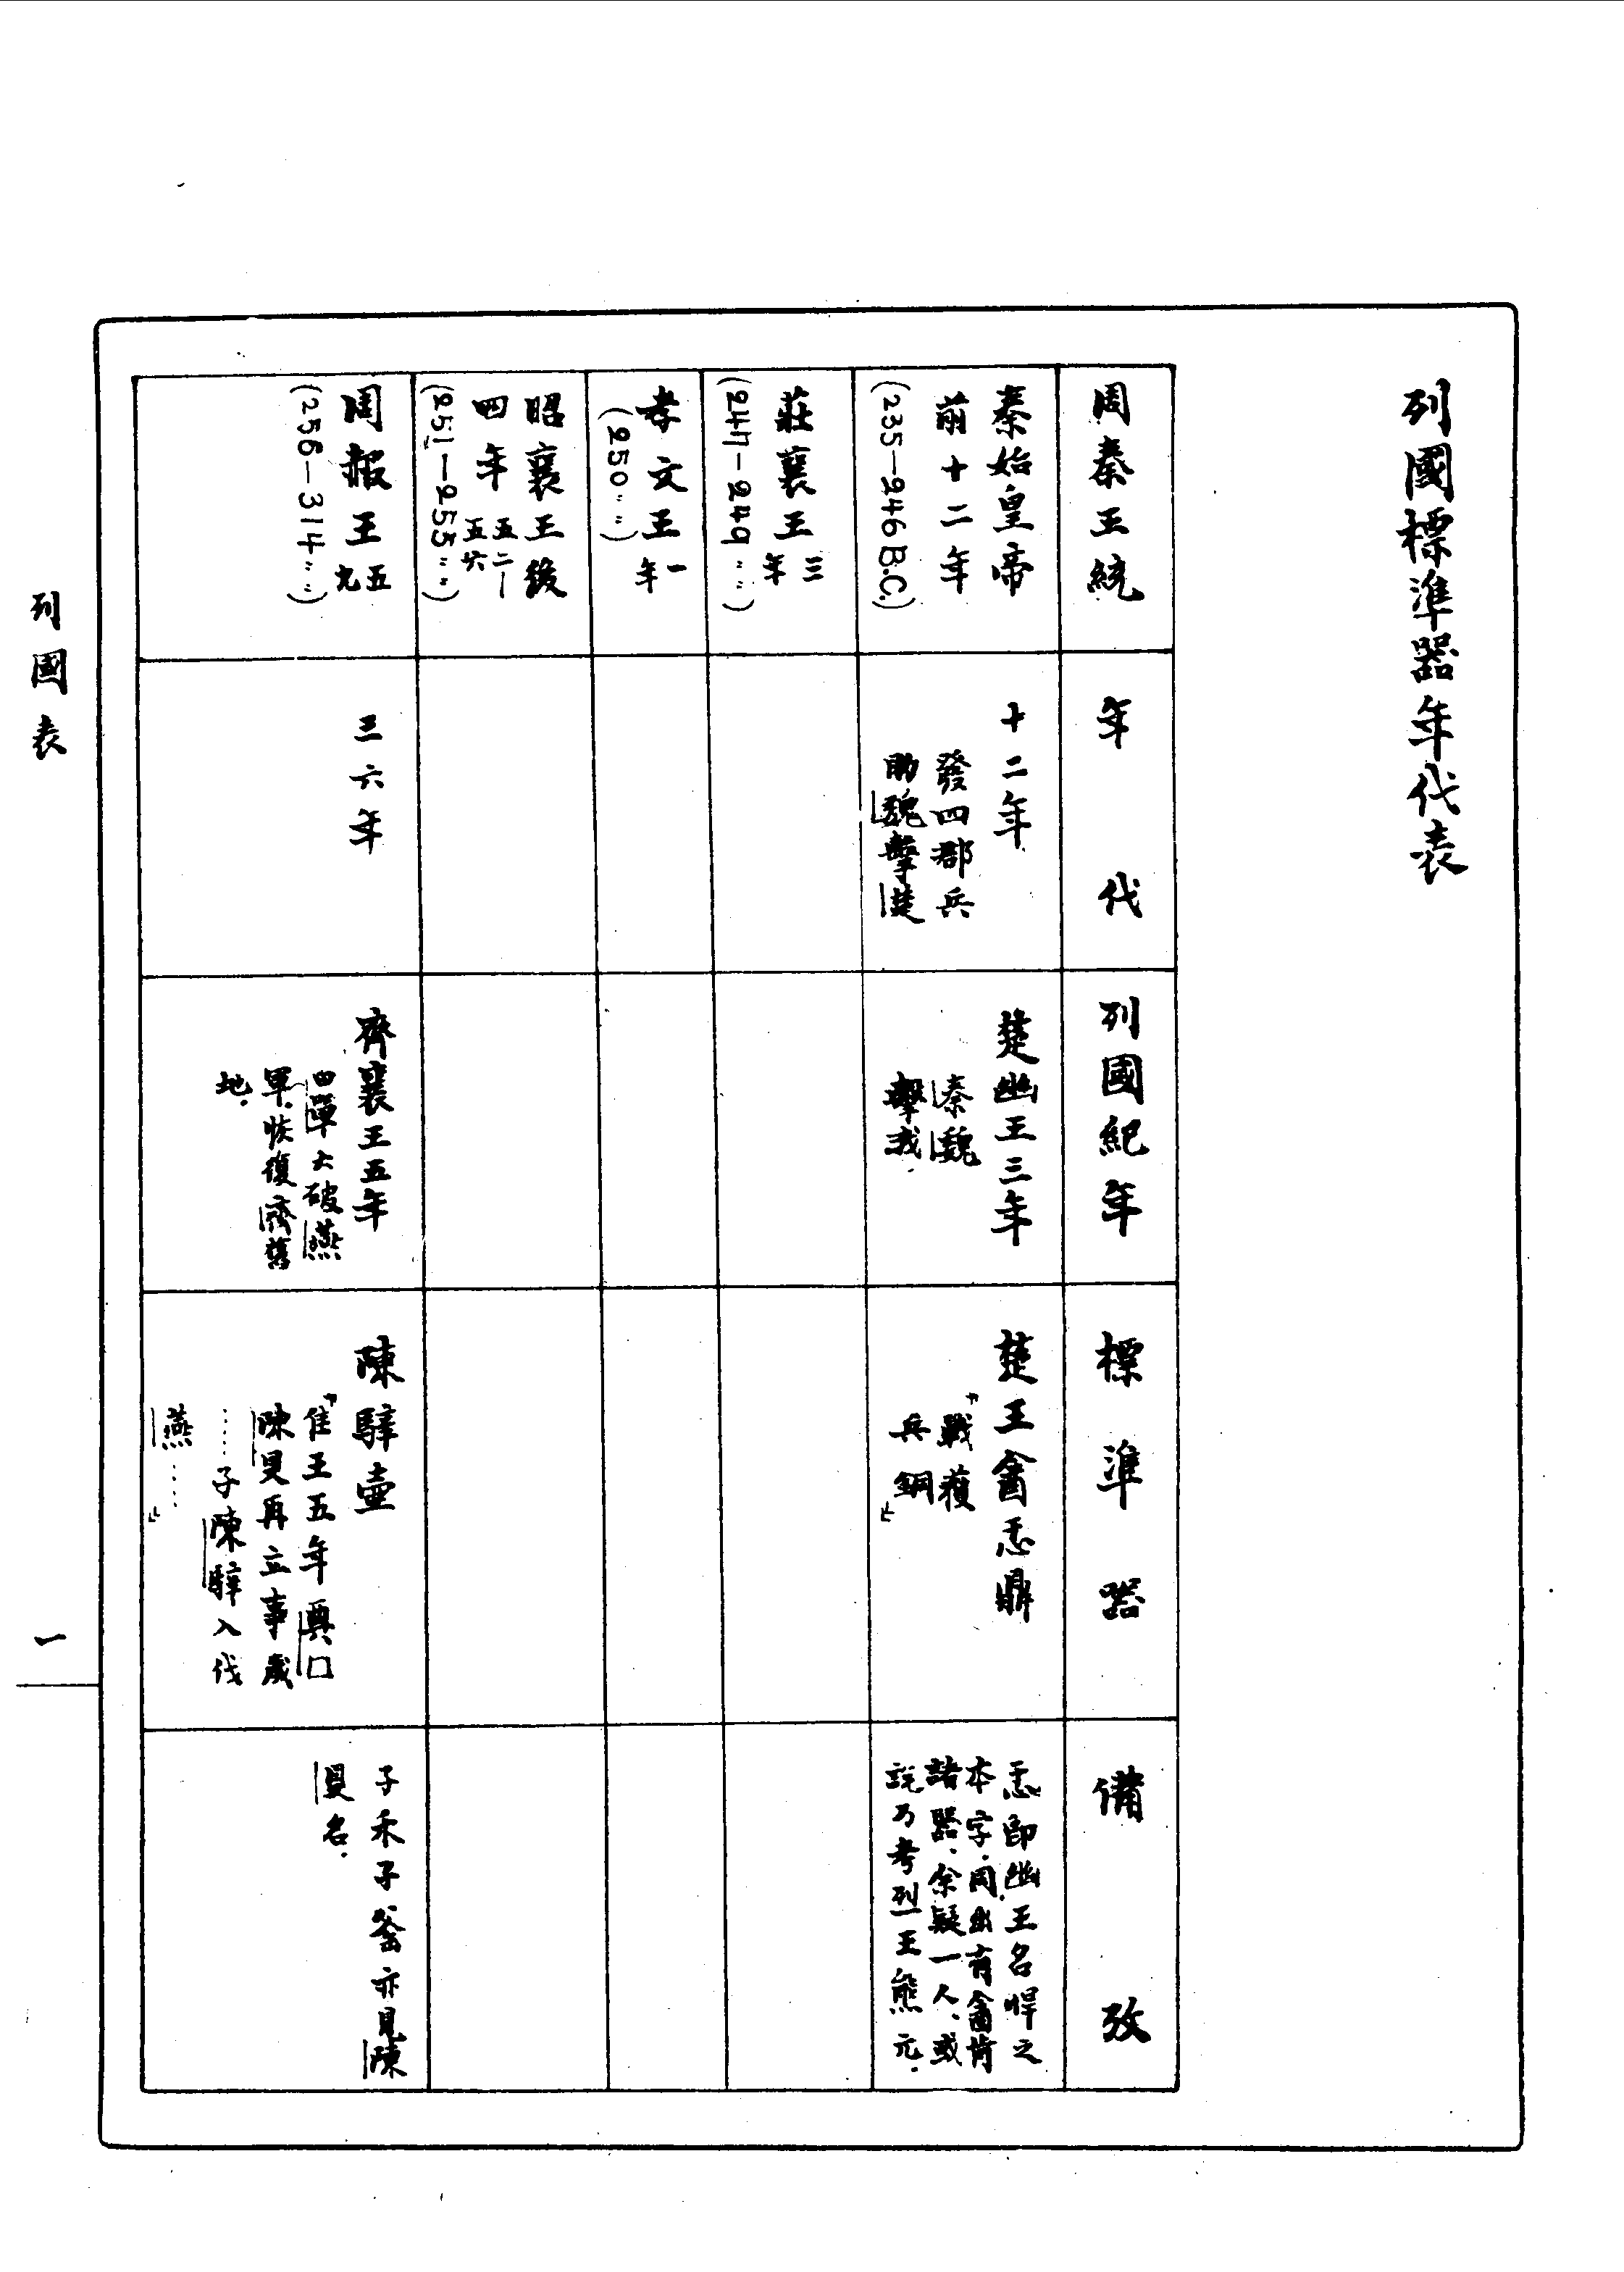 列國標準器年代表
周秦王統
年代
列國紀年
標準器
備攷
秦始皇帝
前十二年
(235—246 B.C.)
十二年
發四郡兵
助魏擊楚
楚幽王三年
秦魏
擊我.
楚王酓忎鼎
『戰獲
兵銅』
忎卽幽王名悍之
本字.同出有酓肯
諸器.余疑一人.或
說乃考烈王熊元.
莊襄王三年
(247—249〃〃)
孝文王一年
(250〃〃)
昭襄王後
四年五二—五六
(251—255〃〃)
周赧王五九
(256—314〃〃)
三六年
齊襄王五年
田單大破燕
軍.恢復齊舊
地.
陳騂壺
『隹王五年奠口
陳旻再立事歲
……子陳騂入伐
燕……』
子禾子釜亦見陳
旻名.
列國表
一